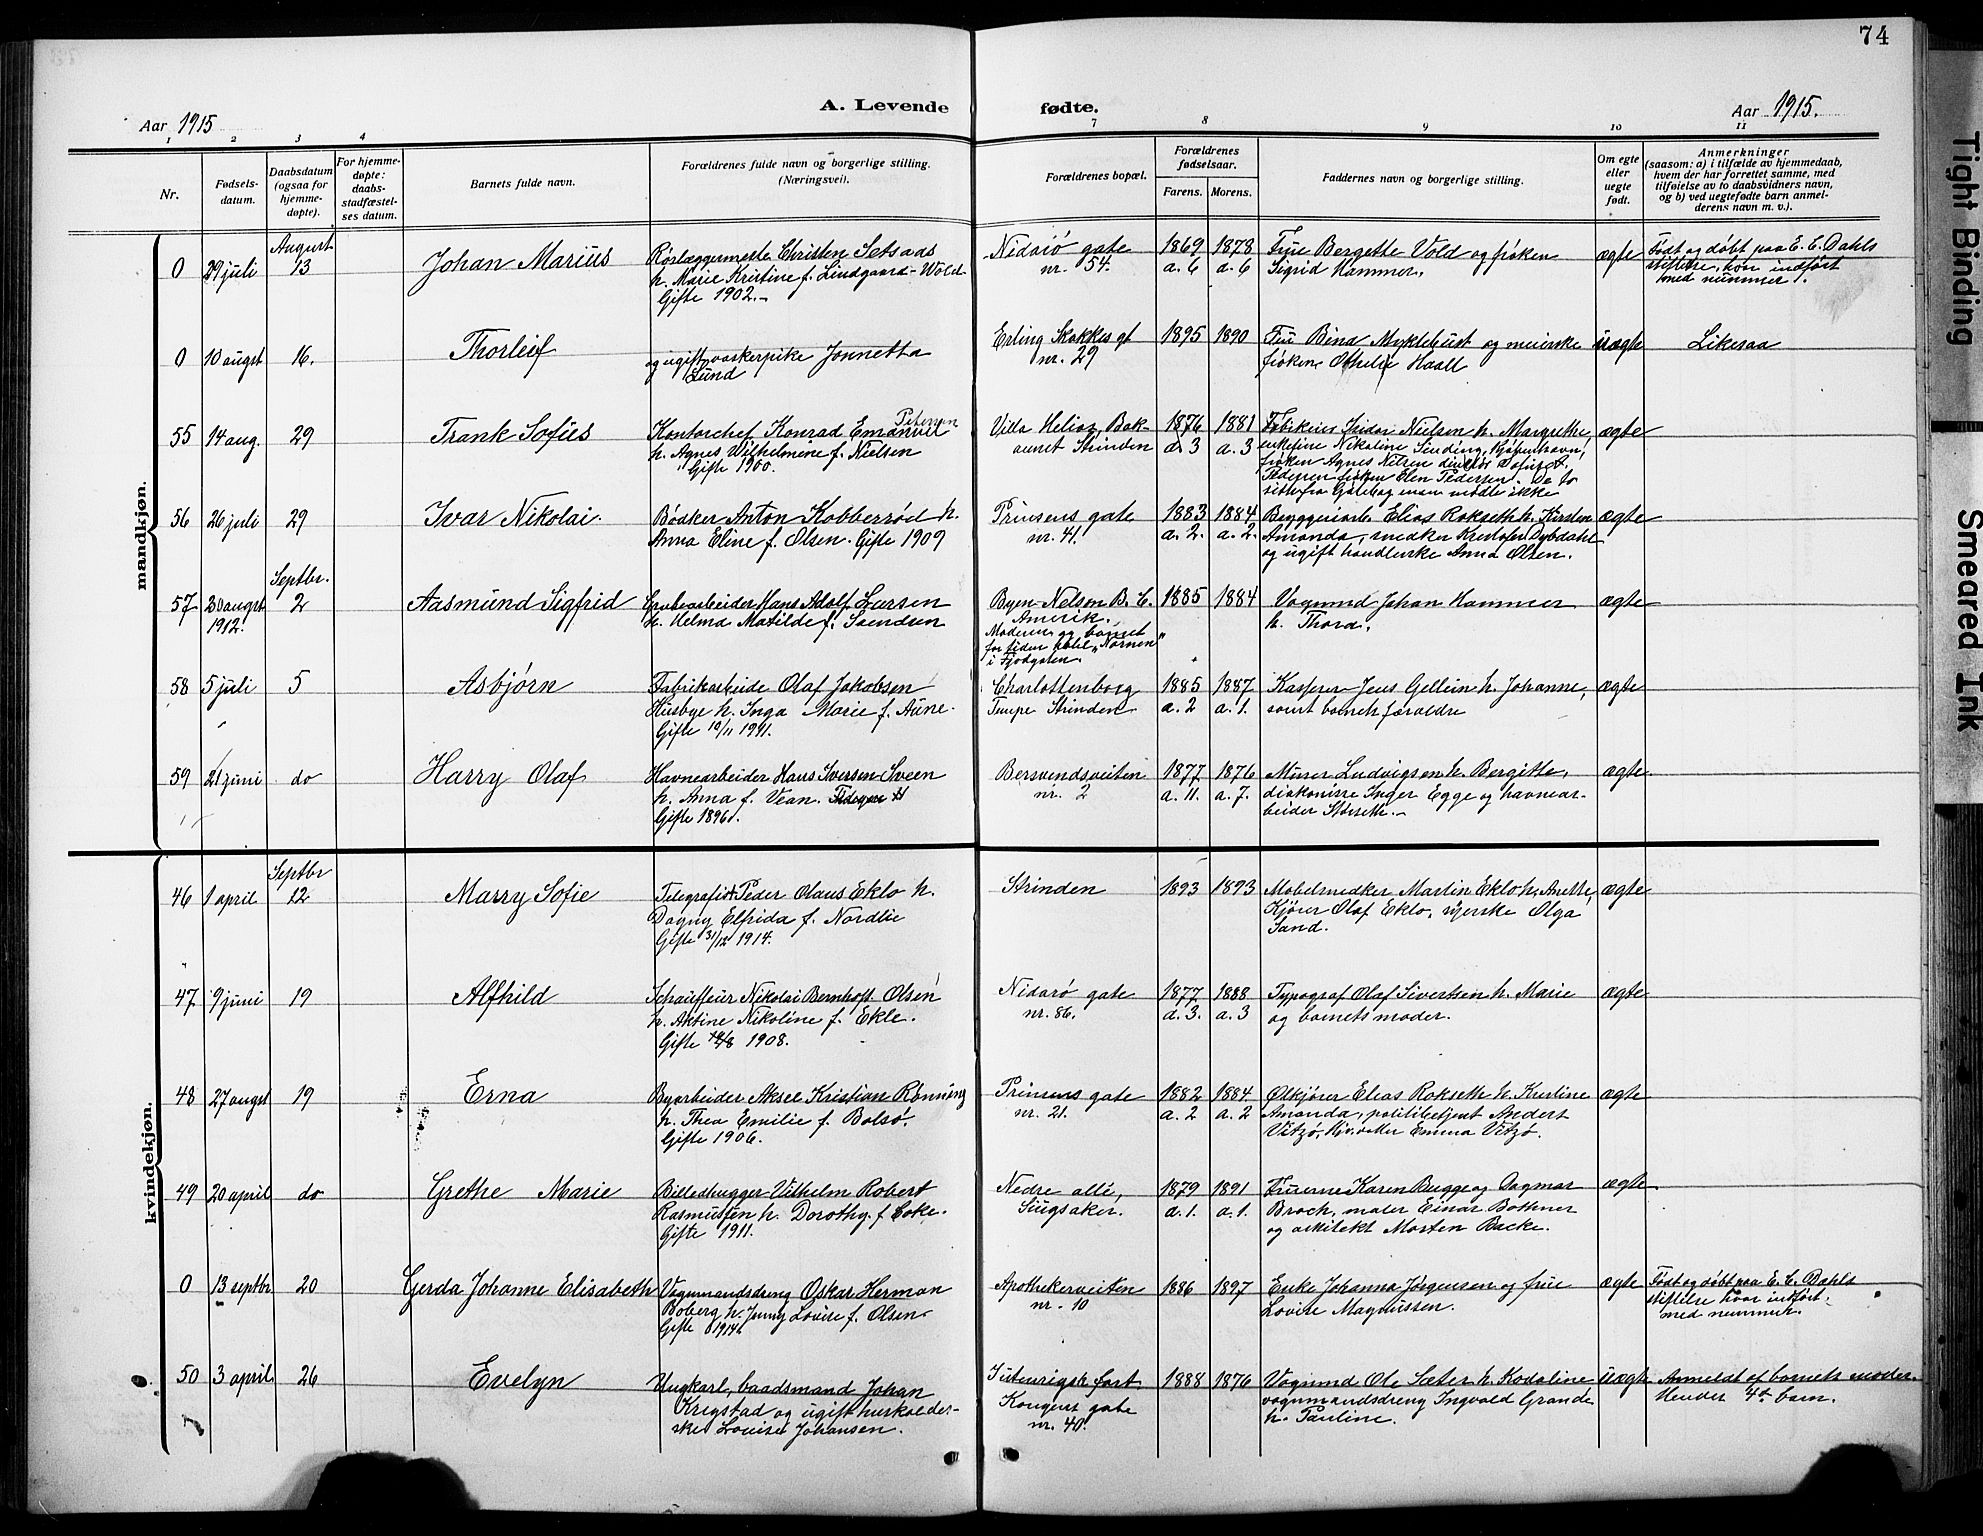 74
A. Levende fødte.
Aar 1915
Aar 1915.
1 2 3 4 7 8 9 10 11
Nr.
Fødsels-
datum.
Daabsdatum
(ogsaa for
hjemme-
døpte).
For hjemme-
døpte:
daabs-
stadfæstel-
ses datum.
Barnets fulde navn.
Forældrenes fulde navn og borgerlige stilling.
(Næringsvei).
Forældrenes bopæl.
Forældrenes
fødselsaar.
Farens. Morens.
Faddernes navn og borgerlige stilling.
Om egte
eller
uegte
født.
Anmerkninger
(saasom: a) i tilfælde av hjemmedaab,
hvem der har forrettet samme, med
tilføielse av to daabsvidners navn,
og b) ved uegtefødte barn anmel-
derens navn m. v.).
mandkjøn.
August
0 29 juli 13 Johan Marius
Rørlæggermester Christen Setsaas
h. Marie Kristine f. Lindgaard-Wold
Gifte 1902.
Nidarø gate
nr. 54.
1869 1878
a. 6 a. 6
Frue Bergette Vold og frøken
Sigrid Hammer.
ægte
Født og døbt paa E. C. Dahls
stiftelse, hvor indført
med nummer.
0 10 augst 16. Thorleif
og ugift vaskerpike Jonnetta
Lund
Erling Skakkes gt
nr. 29
1895 1890
Fru Bina Myklebust og meierske
frøken Othelie Haall
uægte
Likesaa
55 14 aug. 29 Frank Sofus
Kontorchef Konrad Emanuel Petersen
h. Agnes Wilhelmine f. Nielsen
Gifte 1900.
Vida Helioz Bak
aunet Strinden
1876 1881
a. 3 a. 3
Fabrikeier Nielsen h. Margrethe,
enkefrue Nikoline Sinding, Kjøbenhavn,
frøken Agnes Nilsen direktør Sofus A.
Pedersen frøken Elen Pedersen. De to
sidste fra Gøteborg men mødte ikke
ægte
56 26 juli 29 Ivar Nikolai.
Bødker Anton Kobberrød h.
Anna Eline f. Olsen. Gifte 1909
Prinsens gate
nr. 41.
1883 1884
a. 2. a. 2.
Bryggeriarb. Elias Rokseth h. Kirsten
Amanda, snedker Kristofer Dybdahl
og ugift handlerske Anna Olsen.
ægte
Septbr.
57 20 augst 2 Aasmund Sigfrid
1912.
Grubearbeider Hans Adolf Larsen
h. Helma Matilde f. Svendsen
Byen Nelson B. C.
Amerik.
Moderen og barnet
for tiden hotel „Nornen"
i Fjordgaten.
1885 1884
Vognmd Johan Hammer
h. Thora.
ægte
58 5 juli 5 Asbjørn
Fabrikarbeide Olaf Jakobsen
Husbye h. Inga Marie f. Aune.
Gifte 10/11 1911.
Charlottenborg
Tempe Strinden
1885 1887
a. 2 a. 1.
Kasserer Jens Gellein h. Johanne,
samt barnets forældre
ægte
59 21 juni do Harry Olaf
Havnearbeider Hans Iversen Sveen
h. Anna f. Vean.
Gifte 1896.
Bersvendsveiten
nr. 2
1877 1876
a. 11. a. 7.
Murer Ludvigsen h. Bergitte,
diakonisse Inger Egge og havnear-
beider Storseth.
ægte
kvindekjøn.
Septbr
46 1 april 12 Marry Sofie
Telegrafist Peder Olaus Eklo h.
Dagny Elfrida f. Nordlie
Gifte 31/12 1914.
Strinden
1893 1893
Møbelsnedker Martin Eklo h. Anette,
Kjører Olaf Eklo, syerske Olga
Sand.
ægte
47 9 juni 19 Alfhild
Schauffeur Nikolai Bernhoft Olsen
h. Aktine Nikoline f. Ekle.
Gifte 1908.
Nidarø gate
nr. 86.
1877 1888
a. 3. a. 3
Typograf Olaf Sivertsen h. Marie
og barnets moder.
ægte
48 27 augst 19 Erna
Byarbeider Aksel Kristian Rønning
h. Thea Emilie f. Bolsø.
Gifte 1906.
Prinsens gate
nr. 21.
1882 1884
a. 2 a. 2
Ølkjører Elias Rokseth h. Kristine
Amanda, politibetjent Anders
Vitzø, Emma Vitzø.
ægte
49 20 april do Grethe Marie
Billedhugger Vilhelm Robert
Rasmussen h. Dorothy f. Coke.
Gifte 1911.
Nedre allé,
Singsaker.
1879 1891
a. 1. a. 1.
Fruerne Karen Bugge og Dagmar
Broch, maler Einar Bothner
og arkitekt Morten Backe.
ægte
0 13 septbr 20 Gerda Johanne Elisabeth
Vognmandsdreng Oskar Herman
Boberg h. Jenny Lovise f. Olsen.
Gifte 1914
Apothekerveiten
nr. 10
1886 1897
Enke Johanna Jørgensen og frue
Lovise Magnussen.
ægte
Født og døbt paa E. C. Dahls
stiftelse hvor indført
med nummer.
50 3 april 26 Evelyn
Ungkarl, baadsmand Johan
Krigstad og ugift husholder-
ske Louise Johansen.
Kongens gate
nr. 40.
1888 1876
Vognmd Ole Sæter h. Kodoline
vognmandsdreng Ingvald Grande
h. Pauline.
uægte
Anmeldt af barnets moder.
Hendes 4de barn.
Tight Binding
Smeared Ink